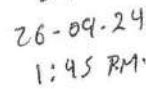 26-09-24
1:45 P.M.